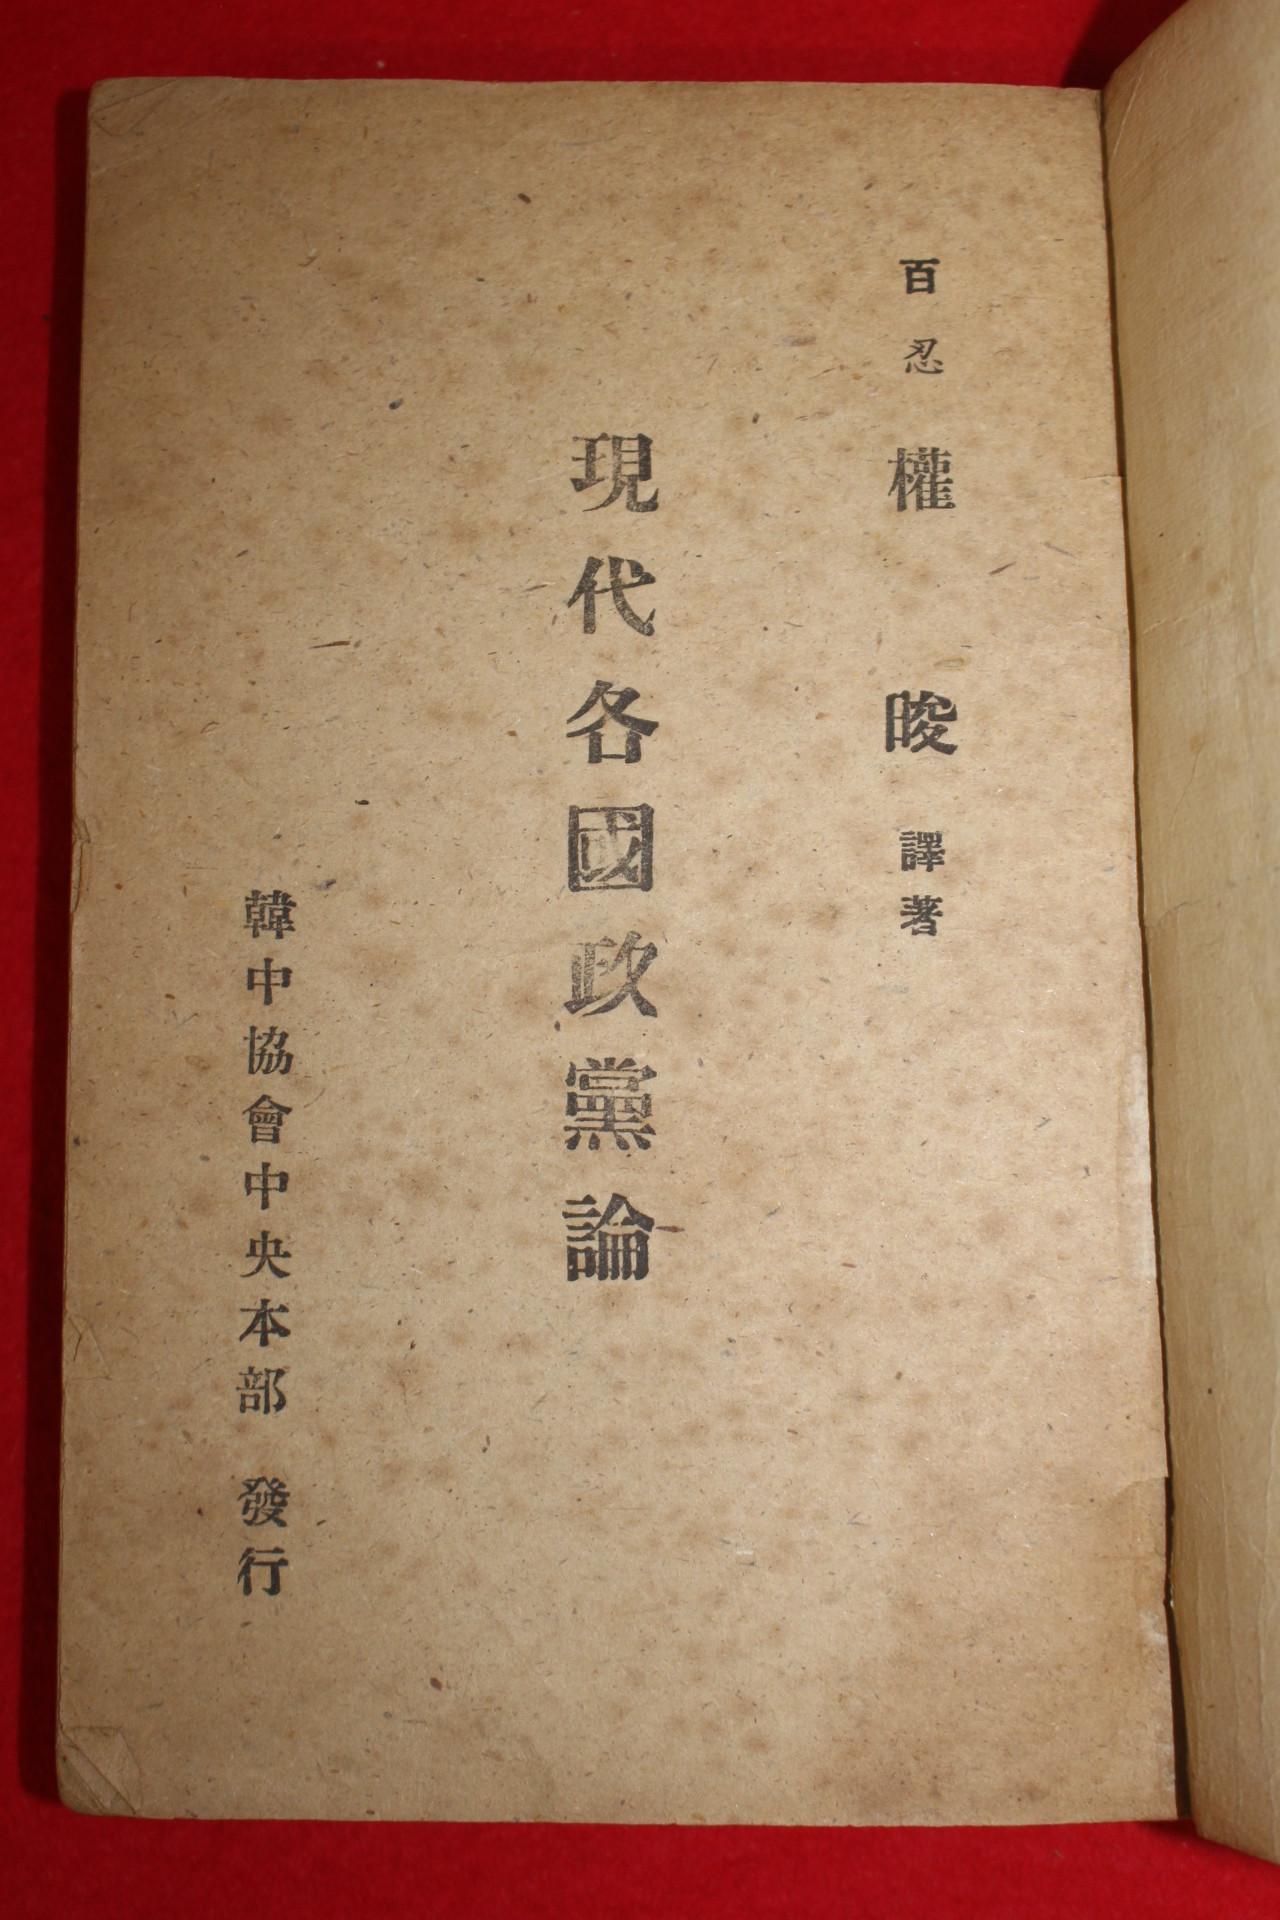 百忍 權 晙 譯著
現代各國政黨論
韓中協會中央本部 發行